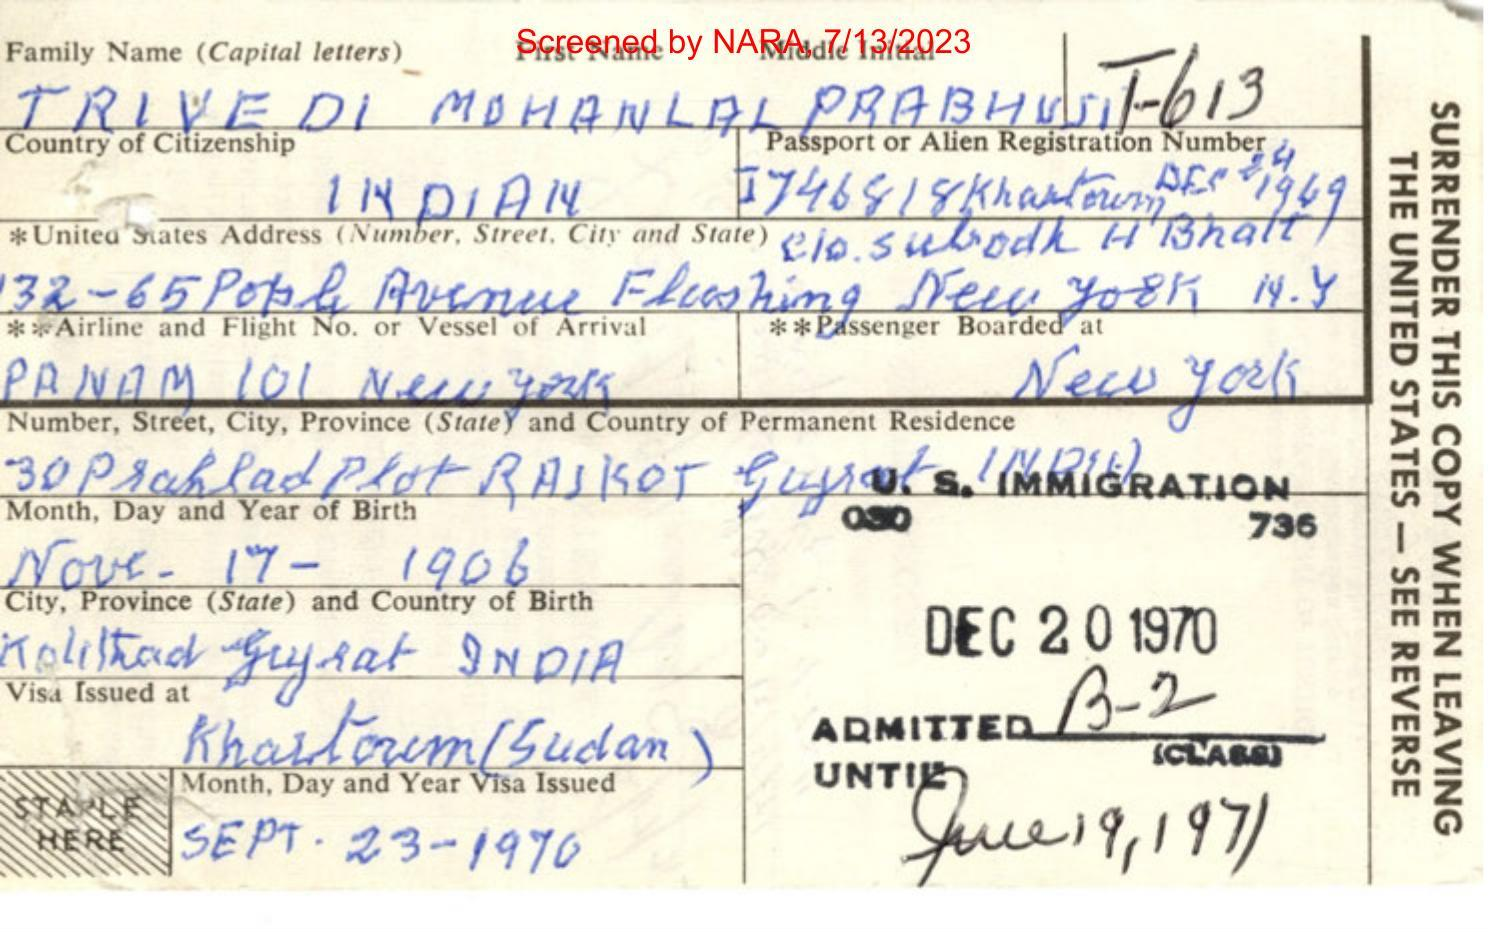 Screened by NARA, 7/13/2023
Family Name (Capital letters) First Name Middle Initial
TRIVEDI MOHANLAL PRABHUJI T-613
Country of Citizenship Passport or Alien Registration Number
INDIAN I746818 Khartoum DEC 24 1969
*United States Address (Number, Street, City and State) c/o. Subodh H Bhatt
132-65 Pople Avenue Flushing New York N.Y
**Airline and Flight No. or Vessel of Arrival **Passenger Boarded at
PANAM 101 New York New York
Number, Street, City, Province (State) and Country of Permanent Residence
30 Prahlad Plot RAJKOT Gujrat INDIA
U. S. IMMIGRATION
Month, Day and Year of Birth
030 736
Nove- 17- 1906
City, Province (State) and Country of Birth
DEC 20 1970
Kolithad Gujrat INDIA
Visa Issued at
B-2
Khartoum (Sudan)
ADMITTED
(CLASS)
UNTIL
STAPLE HERE
Month, Day and Year Visa Issued
SEPT. 23-1970
June 19, 1971
SURRENDER THIS COPY WHEN LEAVING
THE UNITED STATES — SEE REVERSE